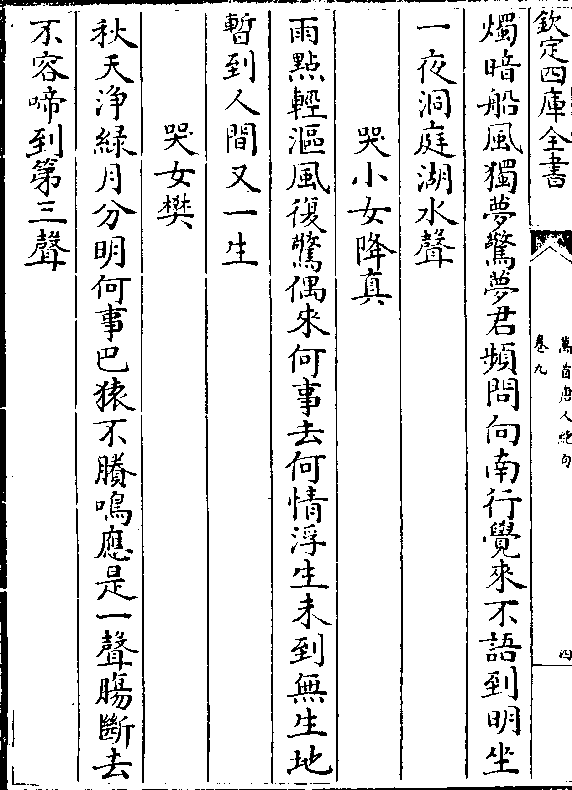 欽定四庫全書
萬首唐人絶句
卷九
四
燭暗船風獨夢驚夢君頻問向南行覺來不語到明坐
一夜洞庭湖水聲
哭小女降真
雨點輕漚風復驚偶來何事去何情浮生未到無生地
暫到人間又一生
哭女樊
秋天淨緑月分明何事巴猿不賸鳴應是一聲腸斷去
不容啼到第三聲